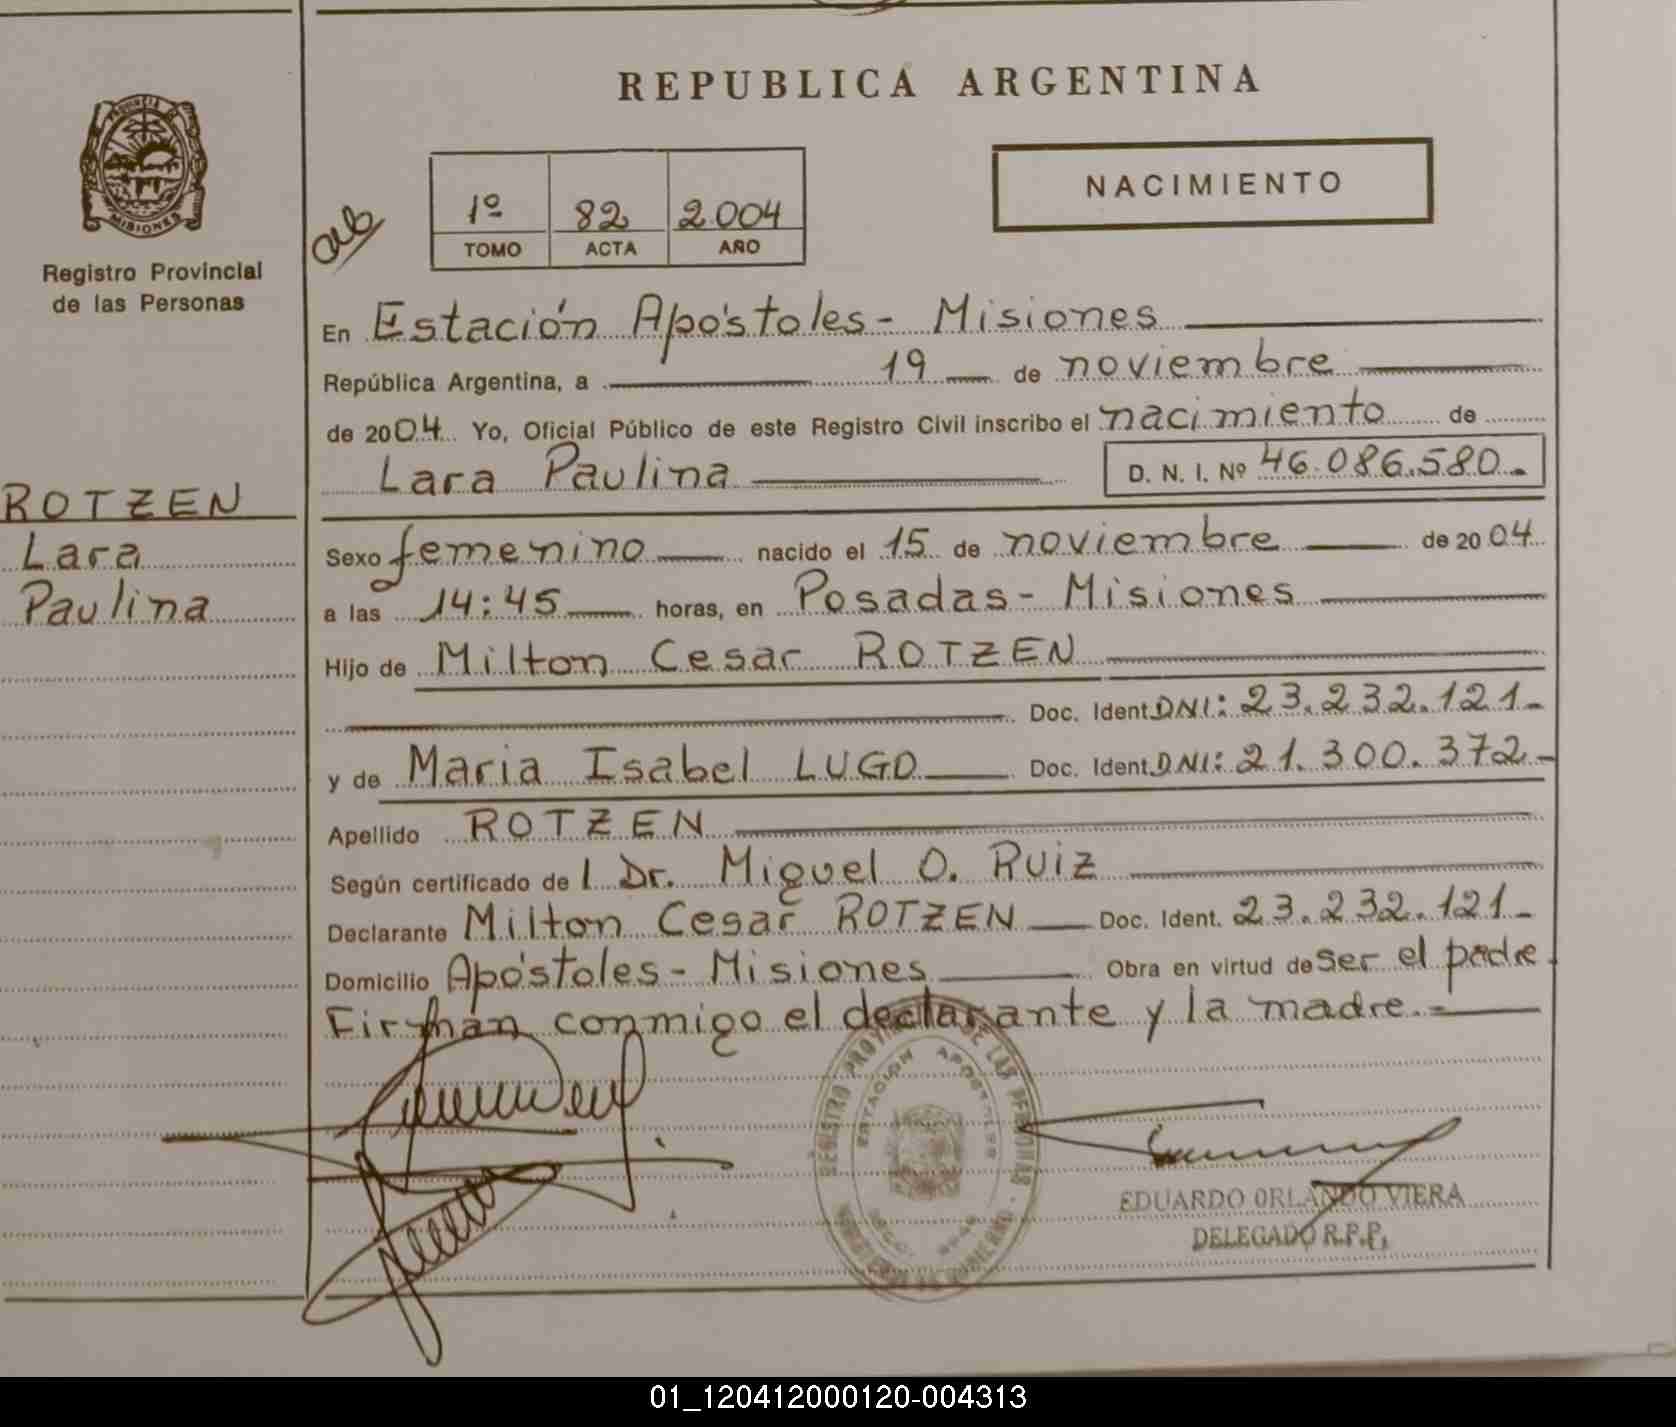 REPUBLICA ARGENTINA
PROVINCIA DE
MISIONES
Registro Provincial
de las Personas
1º 82 2.004
TOMO ACTA AÑO
NACIMIENTO
En Estación Apóstoles - Misiones
República Argentina, a 19 de noviembre
de 2004. Yo, Oficial Público de este Registro Civil inscribo el nacimiento de
Lara Paulina D. N. I. Nº 46.086.580.-
ROTZEN
Lara
Paulina
Sexo femenino nacido el 15 de noviembre de 2004
a las 14:45 horas, en Posadas - Misiones
Hijo de Milton Cesar ROTZEN
Doc. Ident. DNI: 23.232.121.-
y de Maria Isabel LUGO Doc. Ident. DNI: 21.300.372.-
Apellido ROTZEN
Según certificado de l Dr. Miguel O. Ruiz
Declarante Milton Cesar ROTZEN Doc. Ident. 23.232.121.-
Domicilio Apóstoles - Misiones Obra en virtud de ser el padre.
Firman conmigo el declarante y la madre.-
REGISTRO PROVINCIAL DE LAS PERSONAS
ESTACION APOSTOLES
EDUARDO ORLANDO VIERA
DELEGADO R.P.P.
01_120412000120-004313